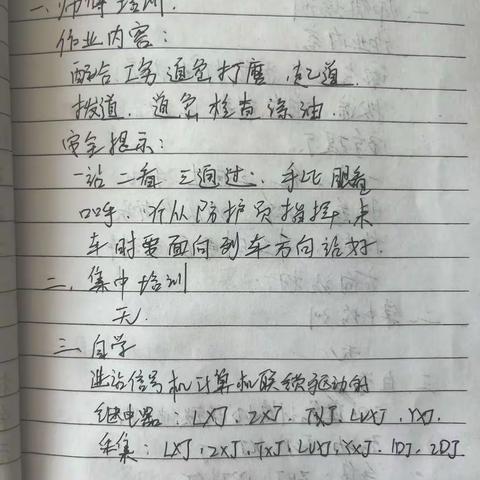 一、师傅培训.
作业内容:
配合工务道岔打磨,起道.
拨道.道岔检查涂油.
安全提示:
一站二看三通过:.手比眼看
口呼.听从防护员指挥.来
车时要面向列车方向站好.
二、集中培训
无.
三、自学
进站信号机计算机联锁驱动时
继电器:LXJ.ZXJ.TXJ.LUXJ.YXJ.
采集:LXJ.ZXJ.TXJ.LUXJ.YXJ.1DJ.2DJ